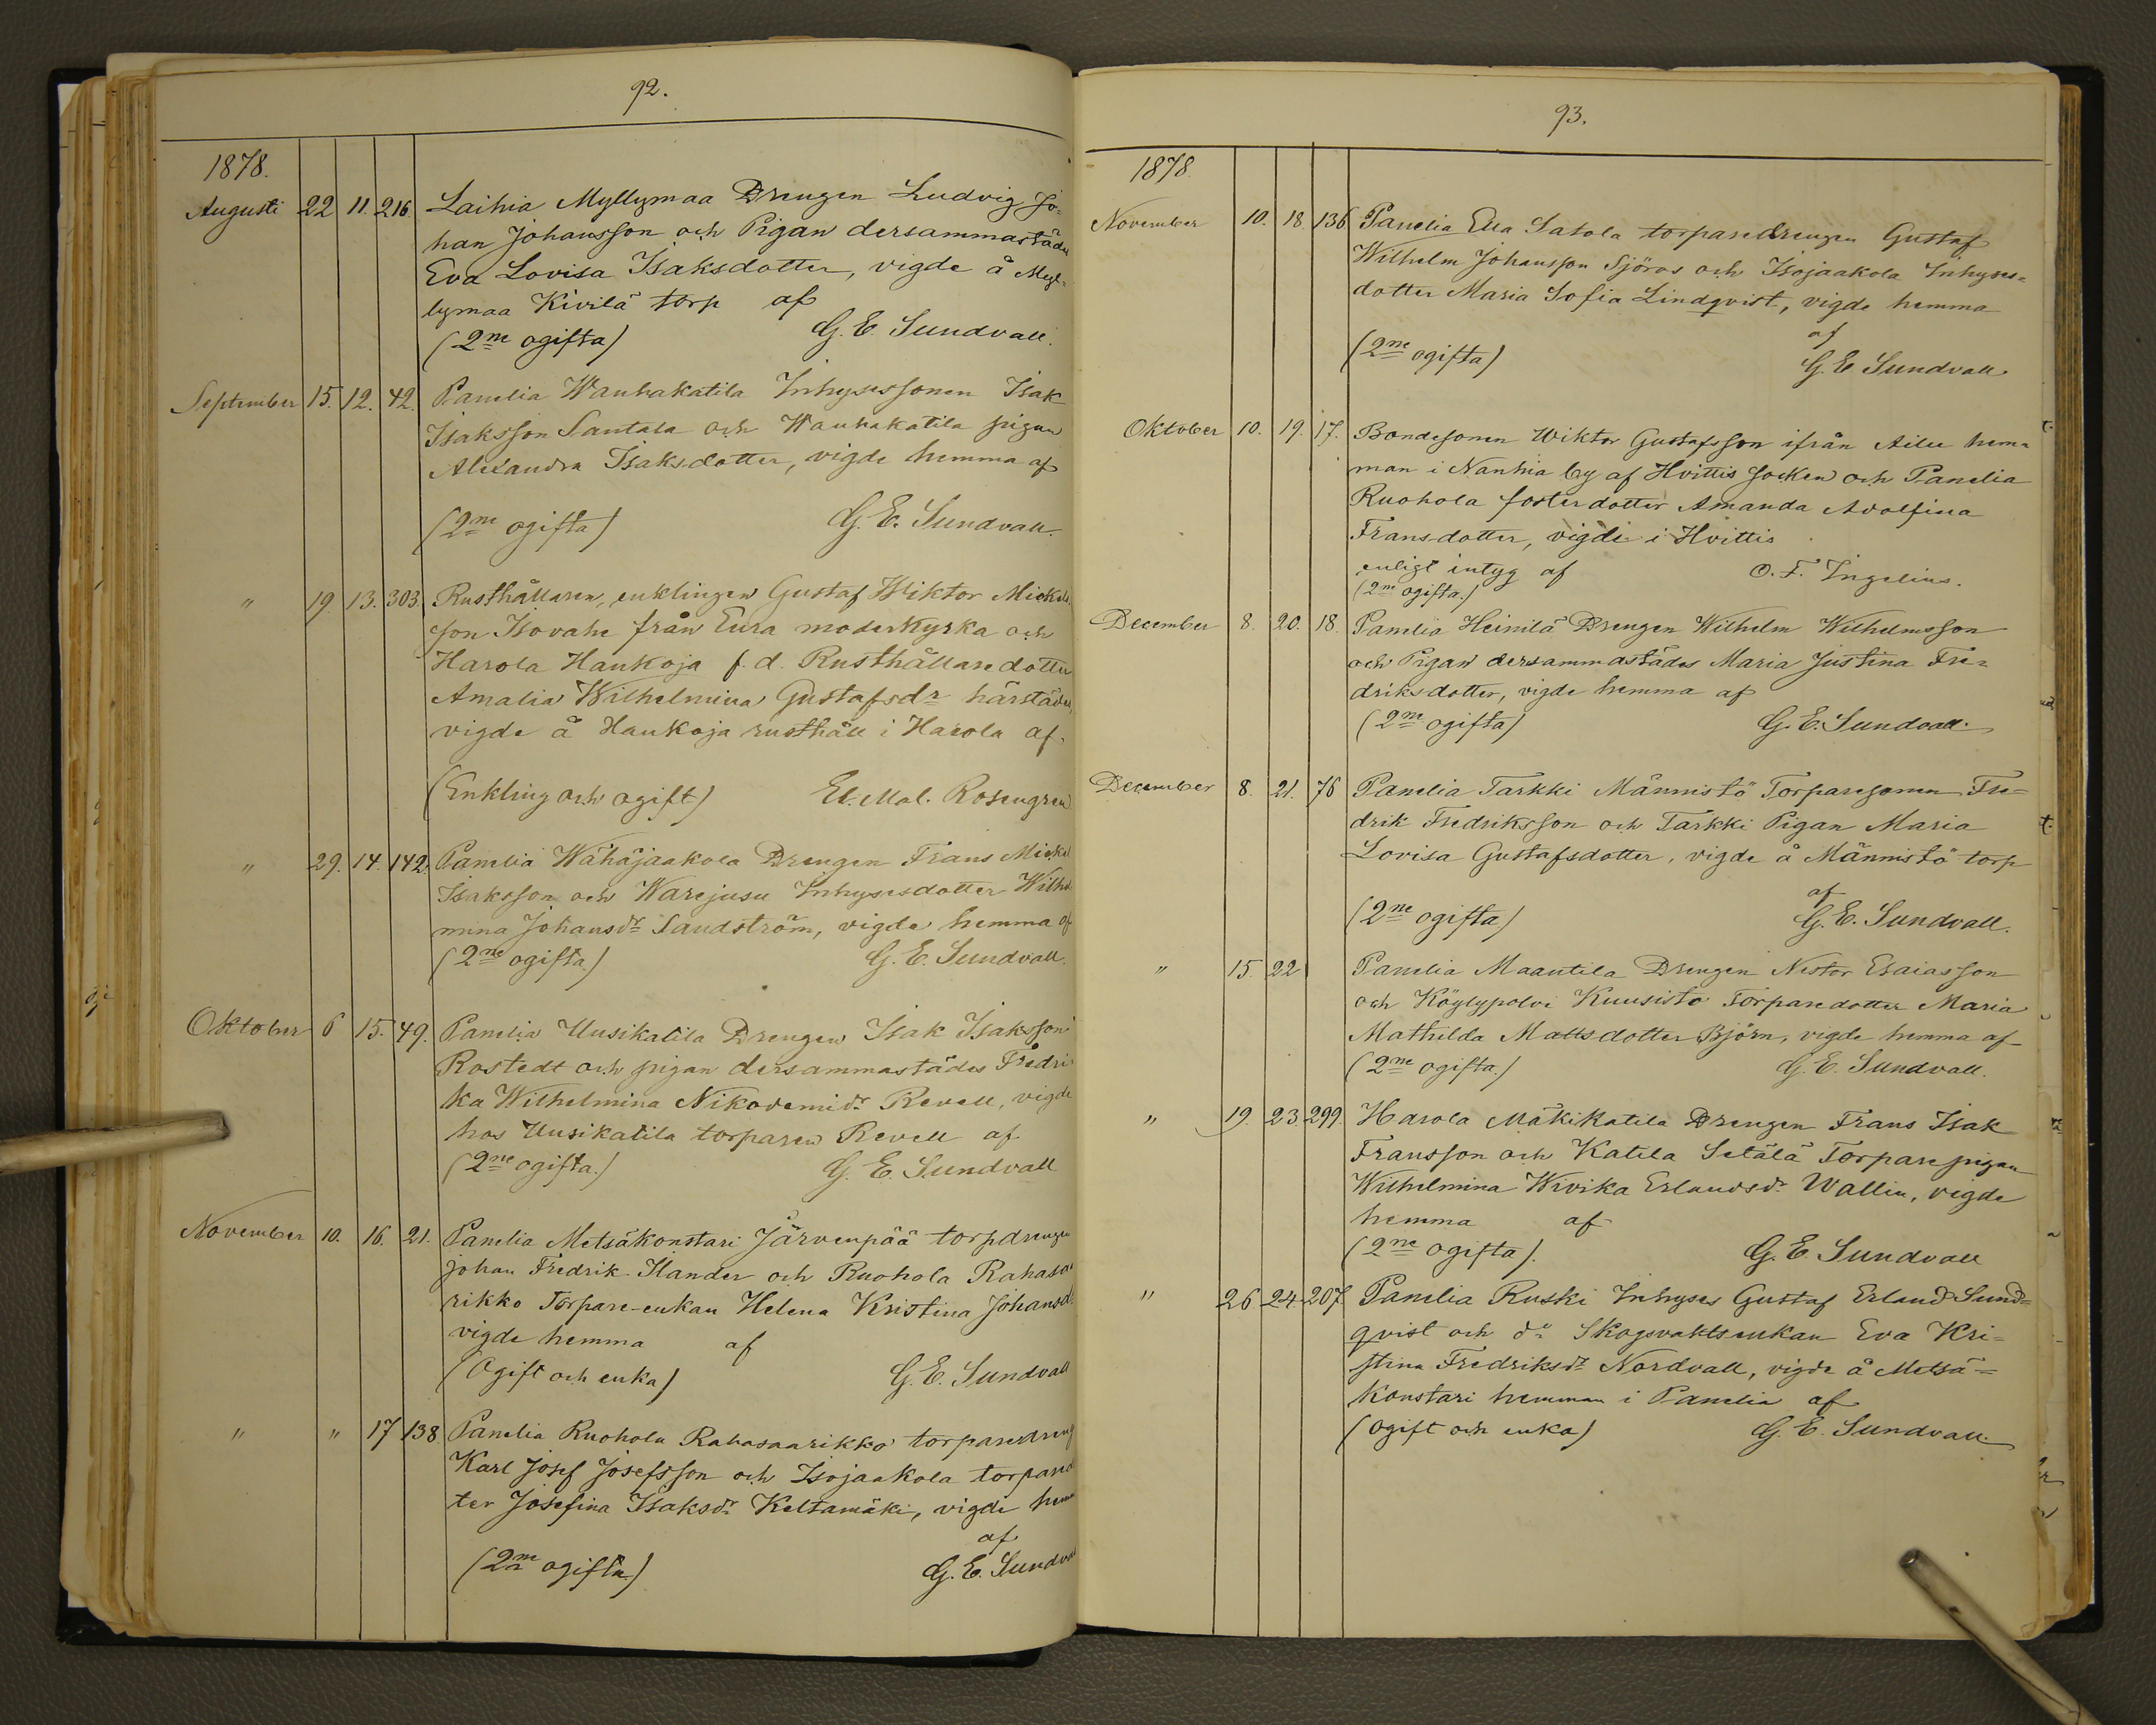 92.
1878.
Augusti 22 11. 216. Laihia Myllymaa Drengen Ludvig Jo-
han Johansson och Pigan dersammastädes
Eva Lovisa Isaksdotter, vigde å Myl-
lymaa Kivilä torp af
(2ne ogifta) G. E. Sundvall.
September 15. 12. 42. Panelia Wanhakatila Inhysessonen Isak
Isaksson Santala och Wanhakatila pigan
Alexandra Isaksdotter, vigde hemma af
(2ne ogifta) G. E. Sundvall.
" 19. 13. 303. Rusthållaren, enklingen Gustaf Wiktor Mickels
son Isovahe från Eura moderkyrka och
Harola Haukoja f. d. Rusthållaredotter
Amalia Wilhelmina Gustafsdr härstädes,
vigde å Haukoja rusthåll i Harola af.
(Enkling och ogift) El. Mal. Rosengren
" 29. 14. 142. Panelia Wähäjaakola Drengen Frans Mickel
Isaksson och Warejusu Inhysesdotter Wilhel
mina Johansdr Sandström, vigde hemma af
(2ne ogifta) G. E. Sundvall.
Oktober 6 15. 49. Panelia Uusikatila Drengen Isak Isaksson
Rostedt och pigan dersammastädes Fredri
ka Wilhelmina Nikodemidr Revell, vigde
hos Uusikatila torparen Revell af
(2ne ogifta.) G. E. Sundvall
November 10. 16. 21. Panelia Metsäkonstari Järvenpää torpdrengen
Johan Fredrik Ilander och Ruohola Rahasa
rikko Torpare-enkan Helena Kristina Johansd.
vigde hemma af
(Ogift och enka) G. E. Sundvall
" " 17 138 Panelia Ruohola Rahasaarikko torparedreng
Karl Josef Josefsson och Isojaakola torpared
ter Josefina Isaksdr Keltamäki, vigde hem
af
(2ne ogifta) G. E. Sundval
93.
1878.
November 10. 18. 136 Panelia Ella Satola torparedrengen Gustaf
Wilhelm Johansson Sjöros och Isojaakola Inhyses-
dotter Maria Sofia Lindqvist, vigde hemma
af
(2ne ogifta) G. E Sundvall
Oktober 10. 19. 17. Bondesonen Wiktor Gustafsson ifrån hem-
man i Nanhia by af Hvittis socken och Panelia
Ruohola fosterdotter Amanda Adolfina
Frans-dotter, vigde i Hvittis
enligt intyg af O. F. Ingelius.
(2ne ogifta.)
December 8. 20. 18. Panelia Heinilä Drengen Wilhelm Wilhelmsson
och Pigan dersammastädes Maria Justina Fre-
driksdotter, vigde hemma af
(2ne ogifta) G. E. Sundvall.
December 8. 21. 76 Panelia Tarkki Männistö Torparesonen Fre-
drik Fredriksson och Tarkki Pigan Maria
Lovisa Gustafsdotter, vigde å Männistö torp
af
(2ne ogifta) G. E. Sundvall.
" 15 22 Panelia Maantila Drengen Nestor Esaiasson
och Köylypolvi Kuusisto Torparedotter Maria
Mathilda Mattsdotter Björn, vigde hemma af
(2ne ogifta) G. E. Sundvall.
" 19. 23. 299. Harola Mäkikatila Drengen Frans Isak
Fransson och Katila Setälä Torparepigan
Wilhelmina Wivika Erlandsdr Wallin, vigde
hemma af
(2ne ogifta). G. E. Sundvall
" 26 24 207 Panelia Ruski Inhyses Gustaf Erland Sund-
qvist och do Skogsvaktsenkan Eva Kri-
stina Fredriksdr Nordvall, vigde å Metsä-
konstari hemman i Panelia af
(ogift och enka) G. E. Sundvall.